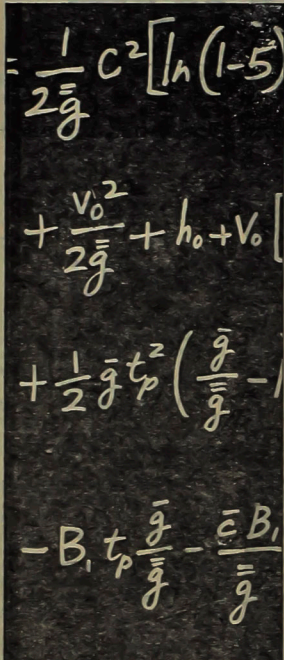 = 1/2g̿ C²[ln(1-5̄)
+ v₀²/2g̿ + h₀+V₀[
+ 1/2 ḡ tₚ² (ḡ/g̿ -1
- B₁ tₚ ḡ/g̿ - c̄ B₁/g̿